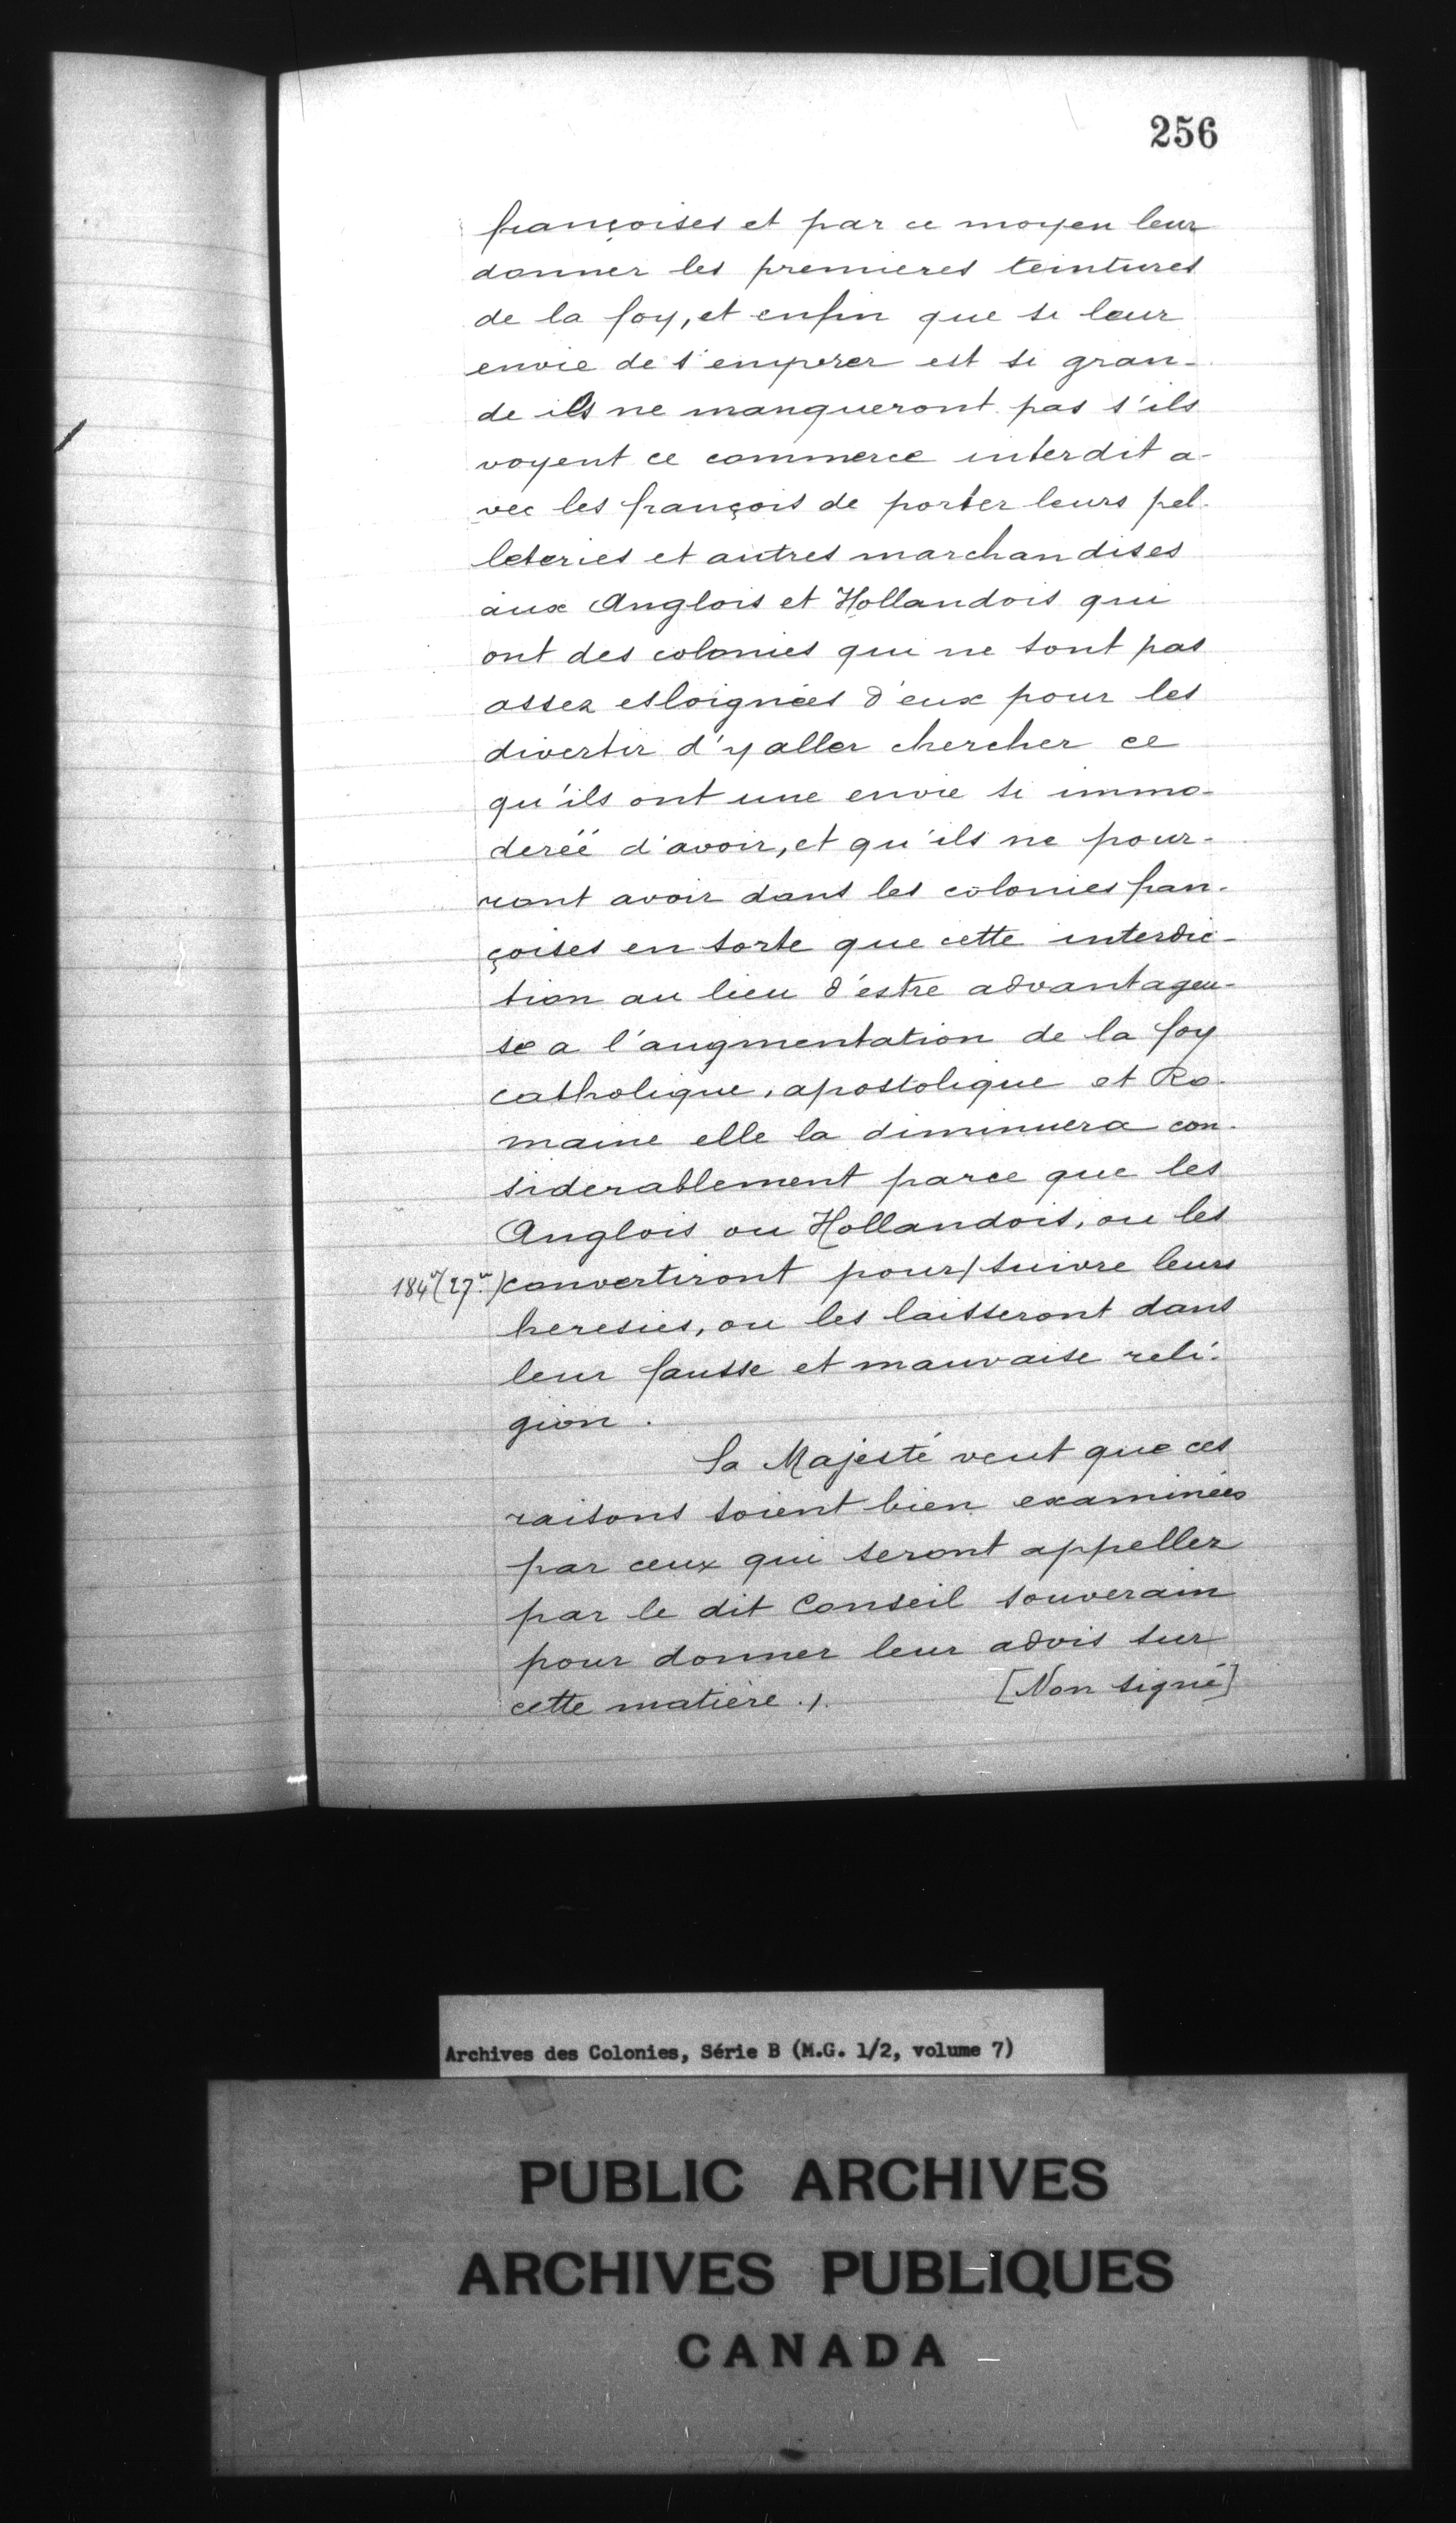 256
françoises et par ce moyen leur
donner les premieres teintures
de la foy, et enfin que si leur
envie de s'enyvrer est si gran-
de ils ne manqueront pas s'ils
voyent ce commerce interdit a-
vec les françois de porter leurs pel-
leteries et autres marchandises
aux Anglois et Hollandois qui
ont des colonies qui ne sont pas
assez esloignées d'eux pour les
divertir d'y aller chercher ce
qu'ils ont une envie si immo-
dereé d'avoir, et qu'ils ne pour-
ront avoir dans les colonies fran-
çoises en sorte que cette interdic-
tion au lieu d'estre advantageu-
se a l'augmentation de la foy
catholique, apostolique et Ro-
maine elle la diminuera con-
siderablement parce que les
Anglois ou Hollandois, ou les
184v(27v.) convertiront pour/suivre leurs
heresies, ou les laisseront dans
leur fausse et mauvaise reli-
gion.
Sa Majesté veut que ces
raisons soient bien examinées
par ceux qui seront appellez
par le dit Conseil souverain
pour donner leur advis sur
cette matière ./. [Non signé]
Archives des Colonies, Série B (M.G. 1/2, volume 7)
PUBLIC ARCHIVES
ARCHIVES PUBLIQUES
CANADA